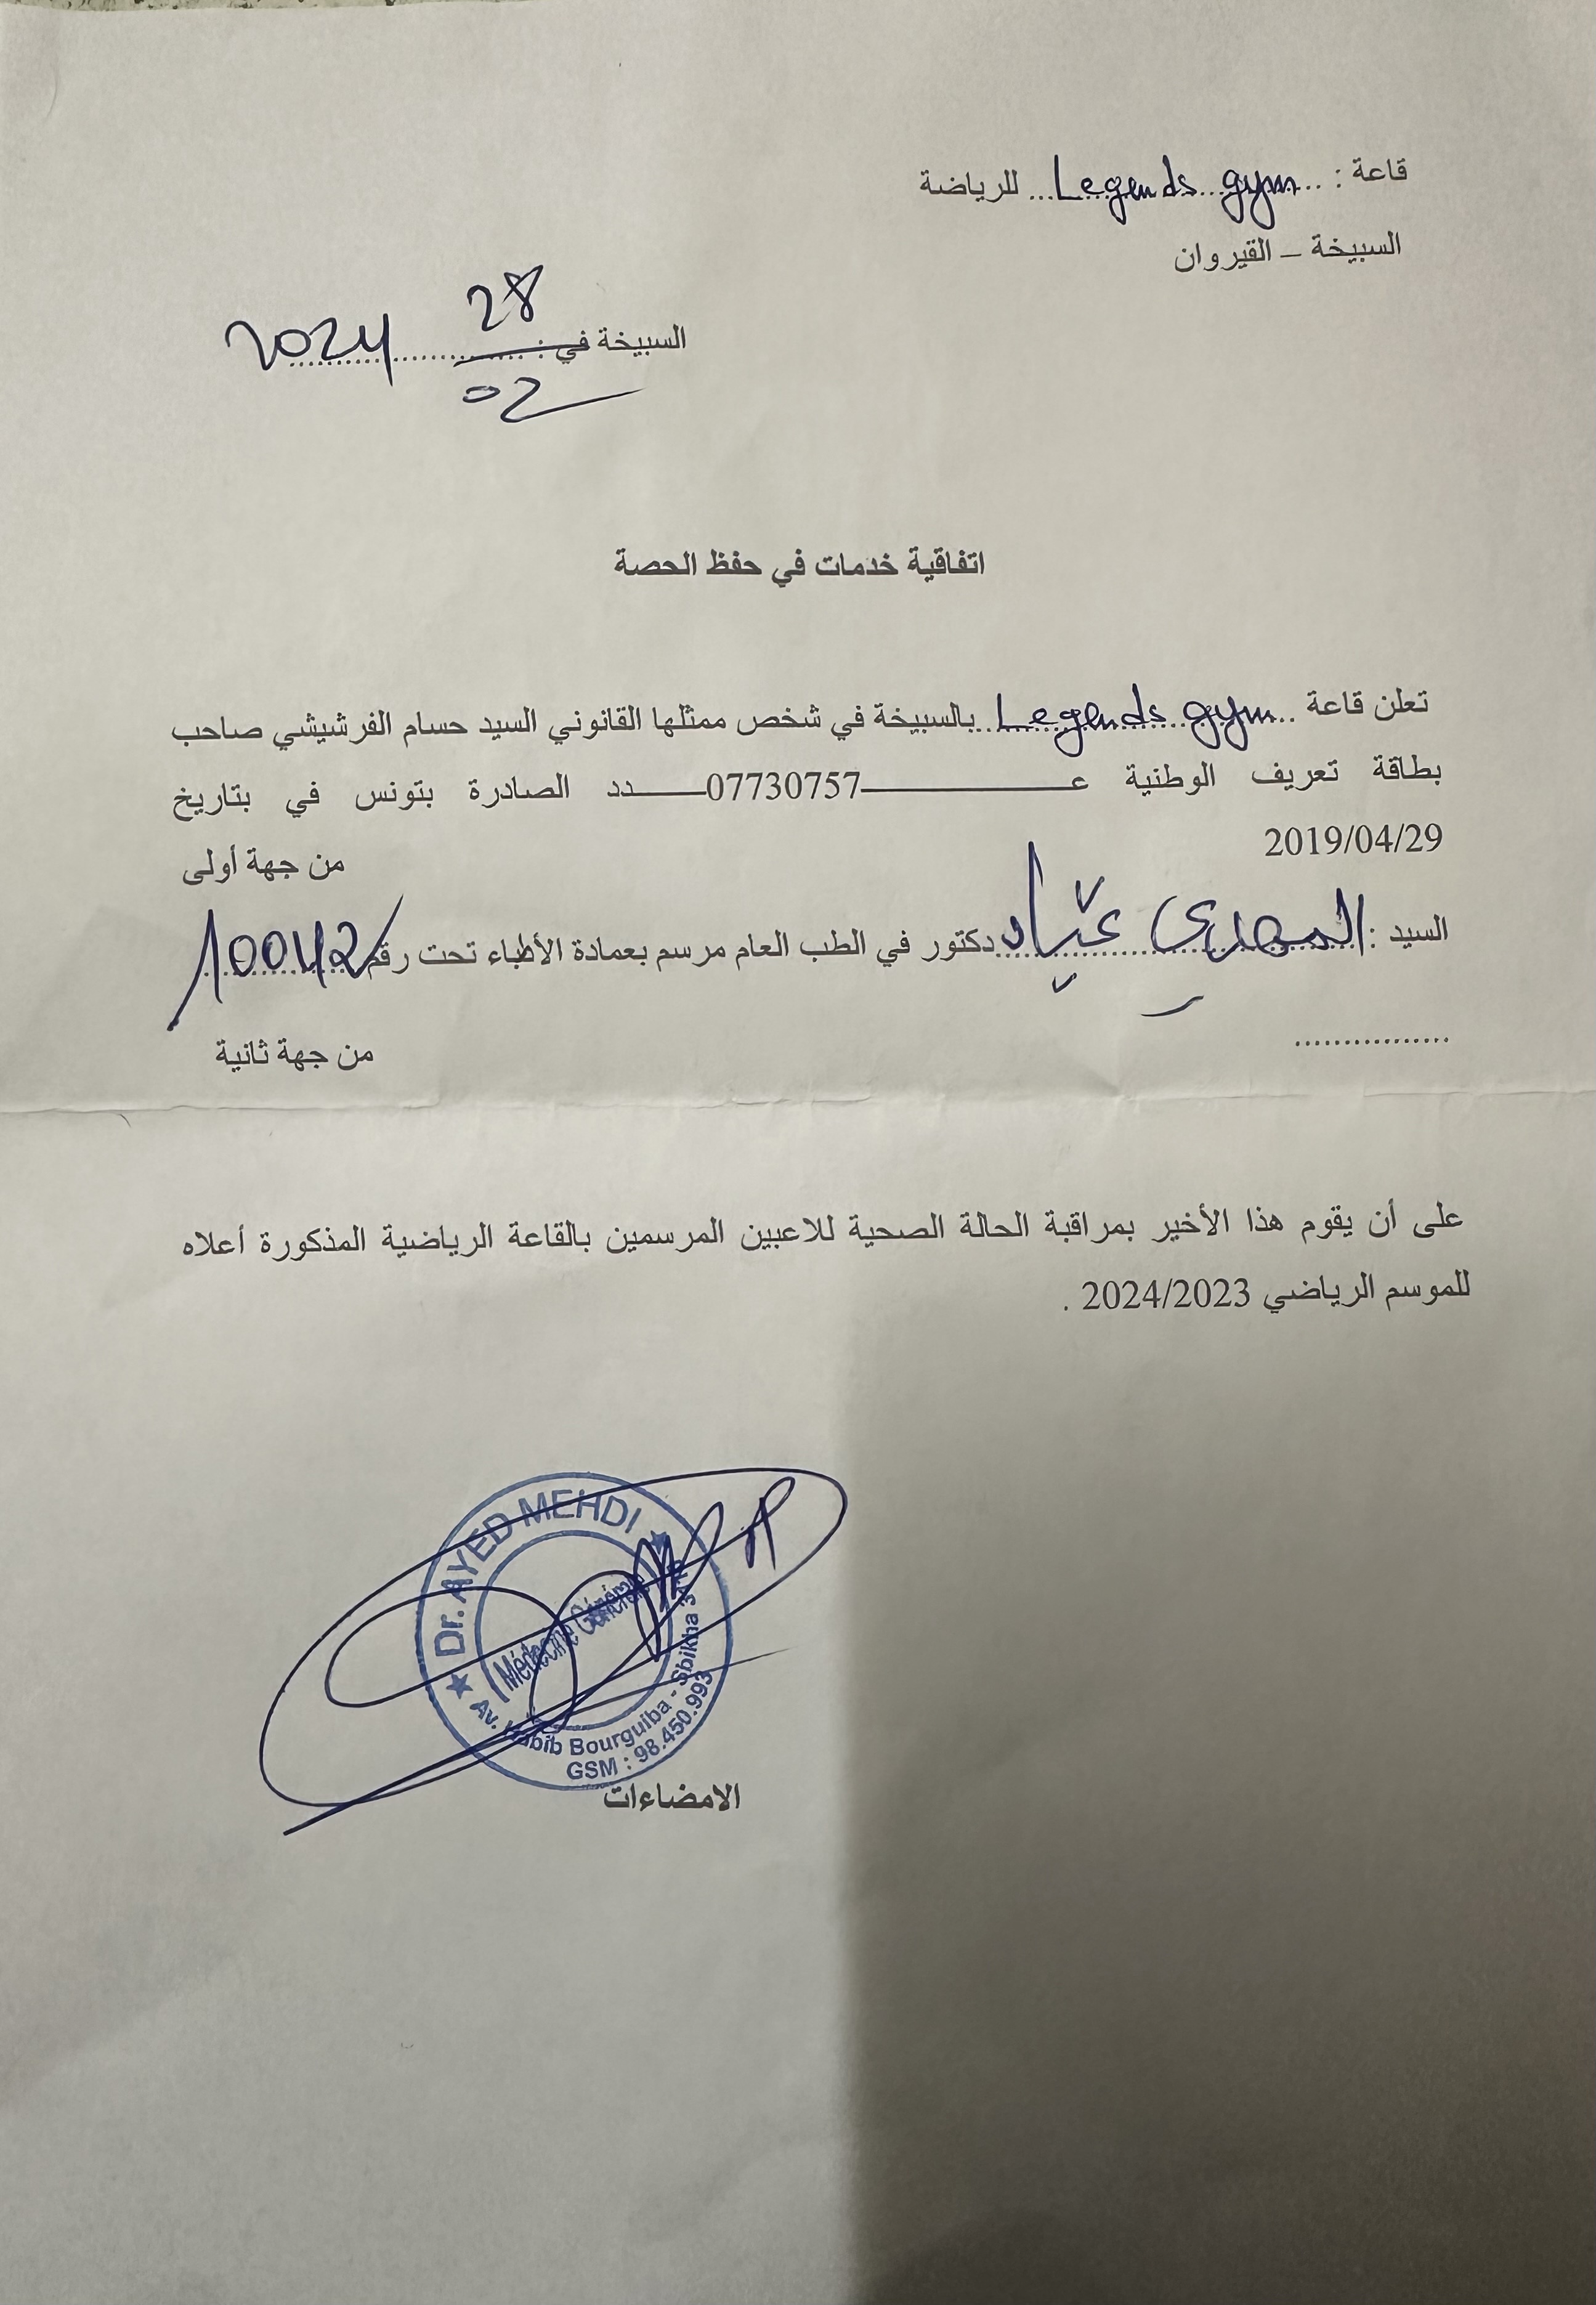 قاعة : .. Legends gym ... للرياضة
السبيخة – القيروان
السبيخة في : 28/02 2024
اتفاقية خدمات في حفظ الحصة
تعلن قاعة .. Legends gym .. بالسبيخة في شخص ممثلها القانوني السيد حسام الفرشيشي صاحب
بطاقة تعريف الوطنية عـــــــــــ07730757ــــــدد الصادرة بتونس في بتاريخ
2019/04/29
من جهة أولى
السيد : المهدي عيّاد دكتور في الطب العام مرسم بعمادة الأطباء تحت رقم 10042
................
من جهة ثانية
على أن يقوم هذا الأخير بمراقبة الحالة الصحية للاعبين المرسمين بالقاعة الرياضية المذكورة أعلاه
للموسم الرياضي 2024/2023 .
Dr. AYED MEHDI
Médecine Générale
Av. Habib Bourguiba - Sbikha
GSM : 98.450.993
الامضاءات